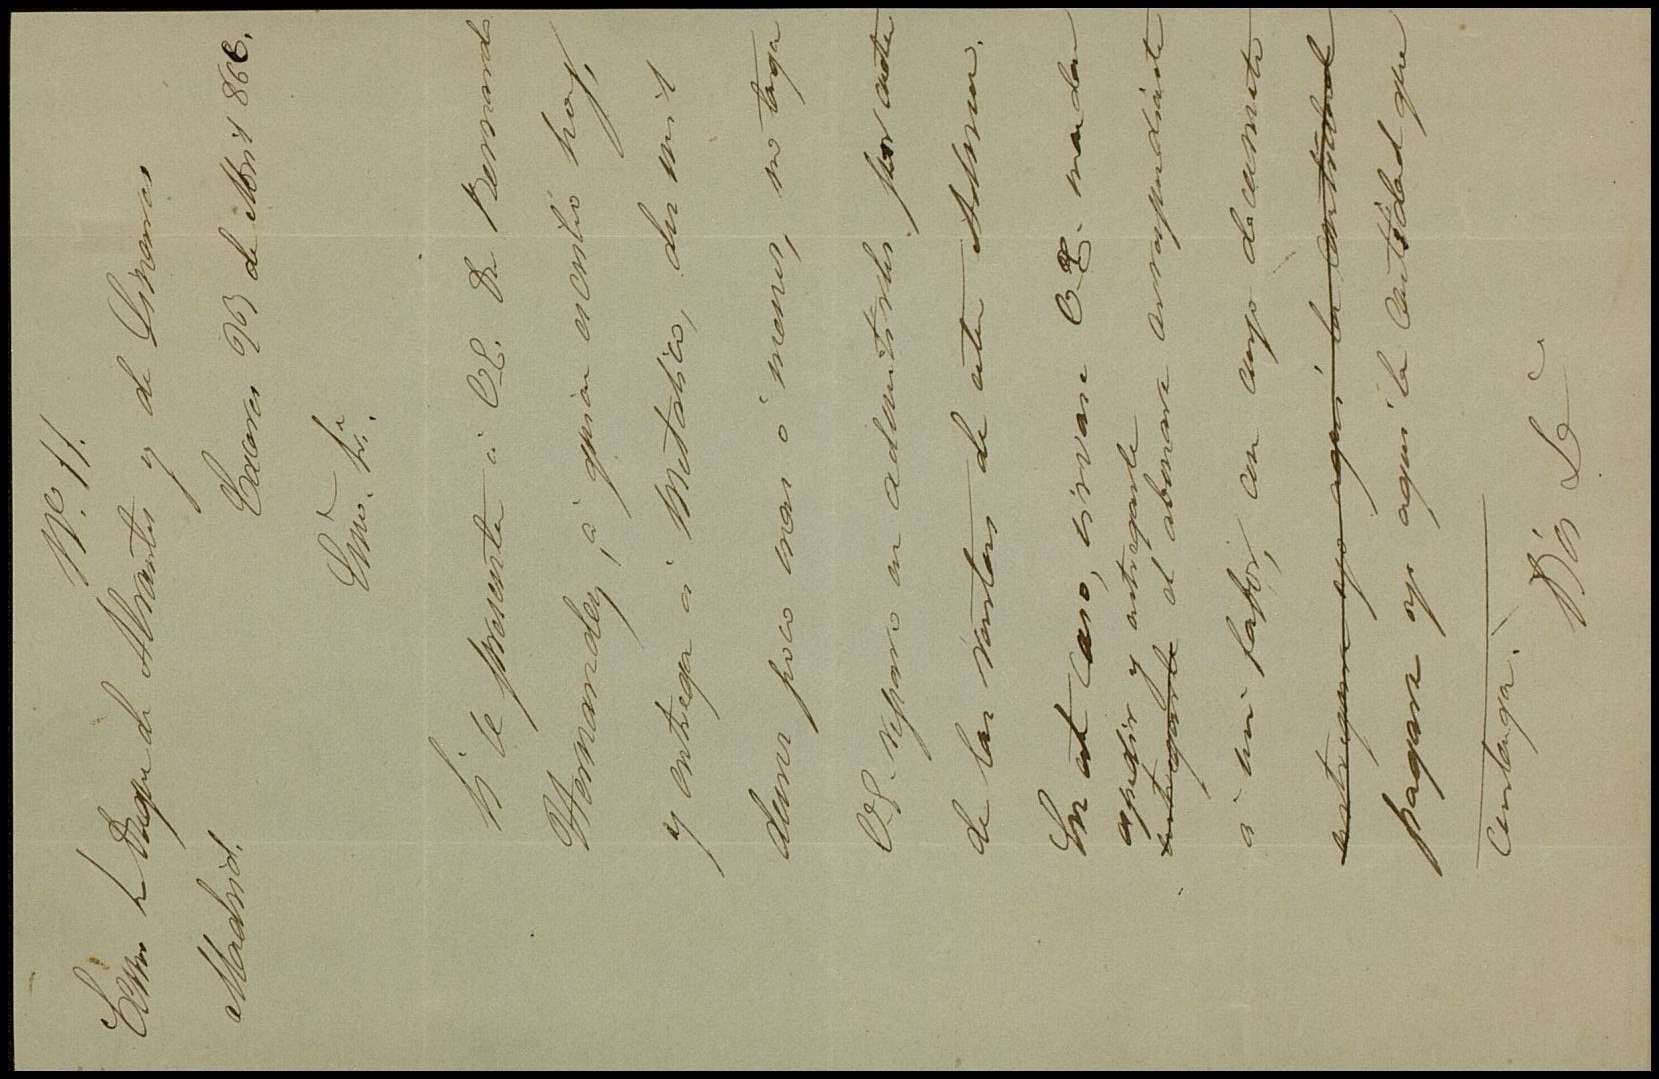 Nº 11.
Excmo Sr Duque de Abrantes y de Linares
Madrid.
Cáceres 23 de Abril 866.
Excmo. Sr.
Si le presenta á V.E. Dn Bernardo
Hernandez, á quien escribo hoy,
y entrega á Metálico, dos mil
duros poco mas ó menos, no tenga
V.E. reparo en admitirlos por cuenta
de las rentas de esta Admon.
En este caso, sírvase V.E. mandar
espedir y entregarle
entregarle el abonaré correspondiente
á mi favor, con cuyo documento
entregare yo aqui la cantidad
pagare yo aqui la cantidad que
contenga.